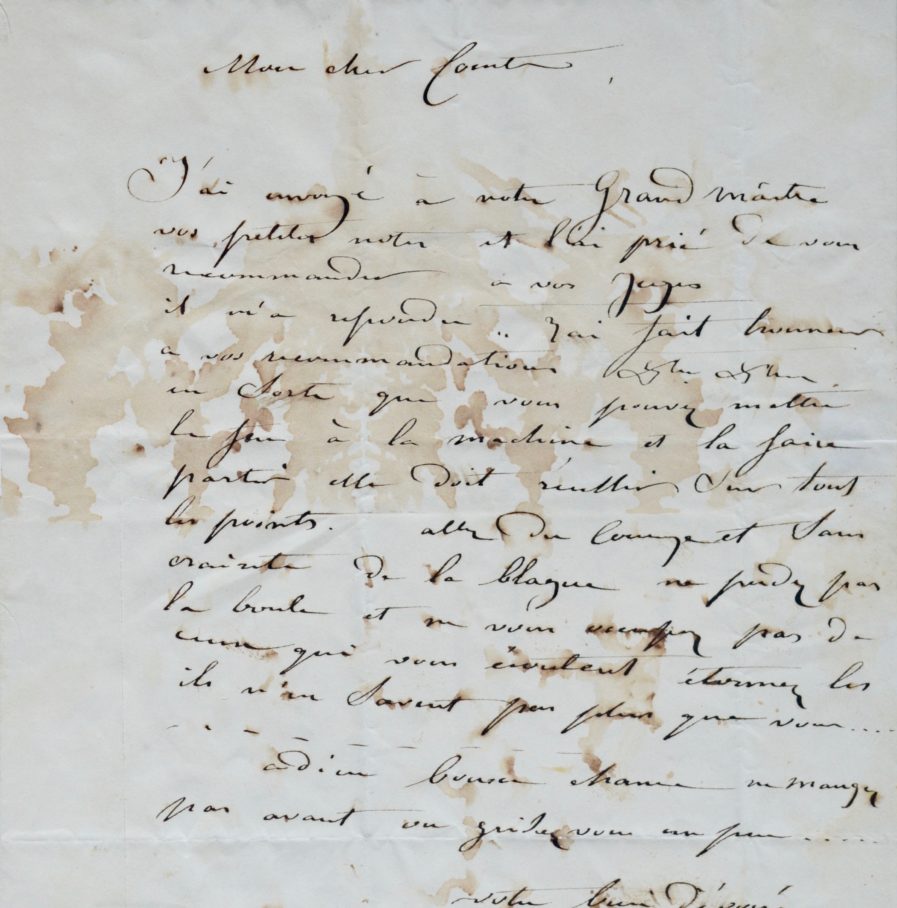 Mon cher Comte
J'ai envoyé à notre Grand maitre
vos petites notes et l'ai prié de vous
recommander à vos Juges
il m'a répondu .. J'ai fait honneur
a vos recommandations
en Sorte que vous pouvez mettre
le feu à la machine et la faire
partir elle doit réussir Sur tout
les points. allez du courage et Sans
crainte de la blague ne perdez pas
la boule et ne vous occupez pas de
ceux qui vous écoutent étonnez les
ils n'en Savent pas plus que vous ....
adieu bonne chance ne mangez
pas avant ou grisez vous un peu .....
votre bien Dévoué